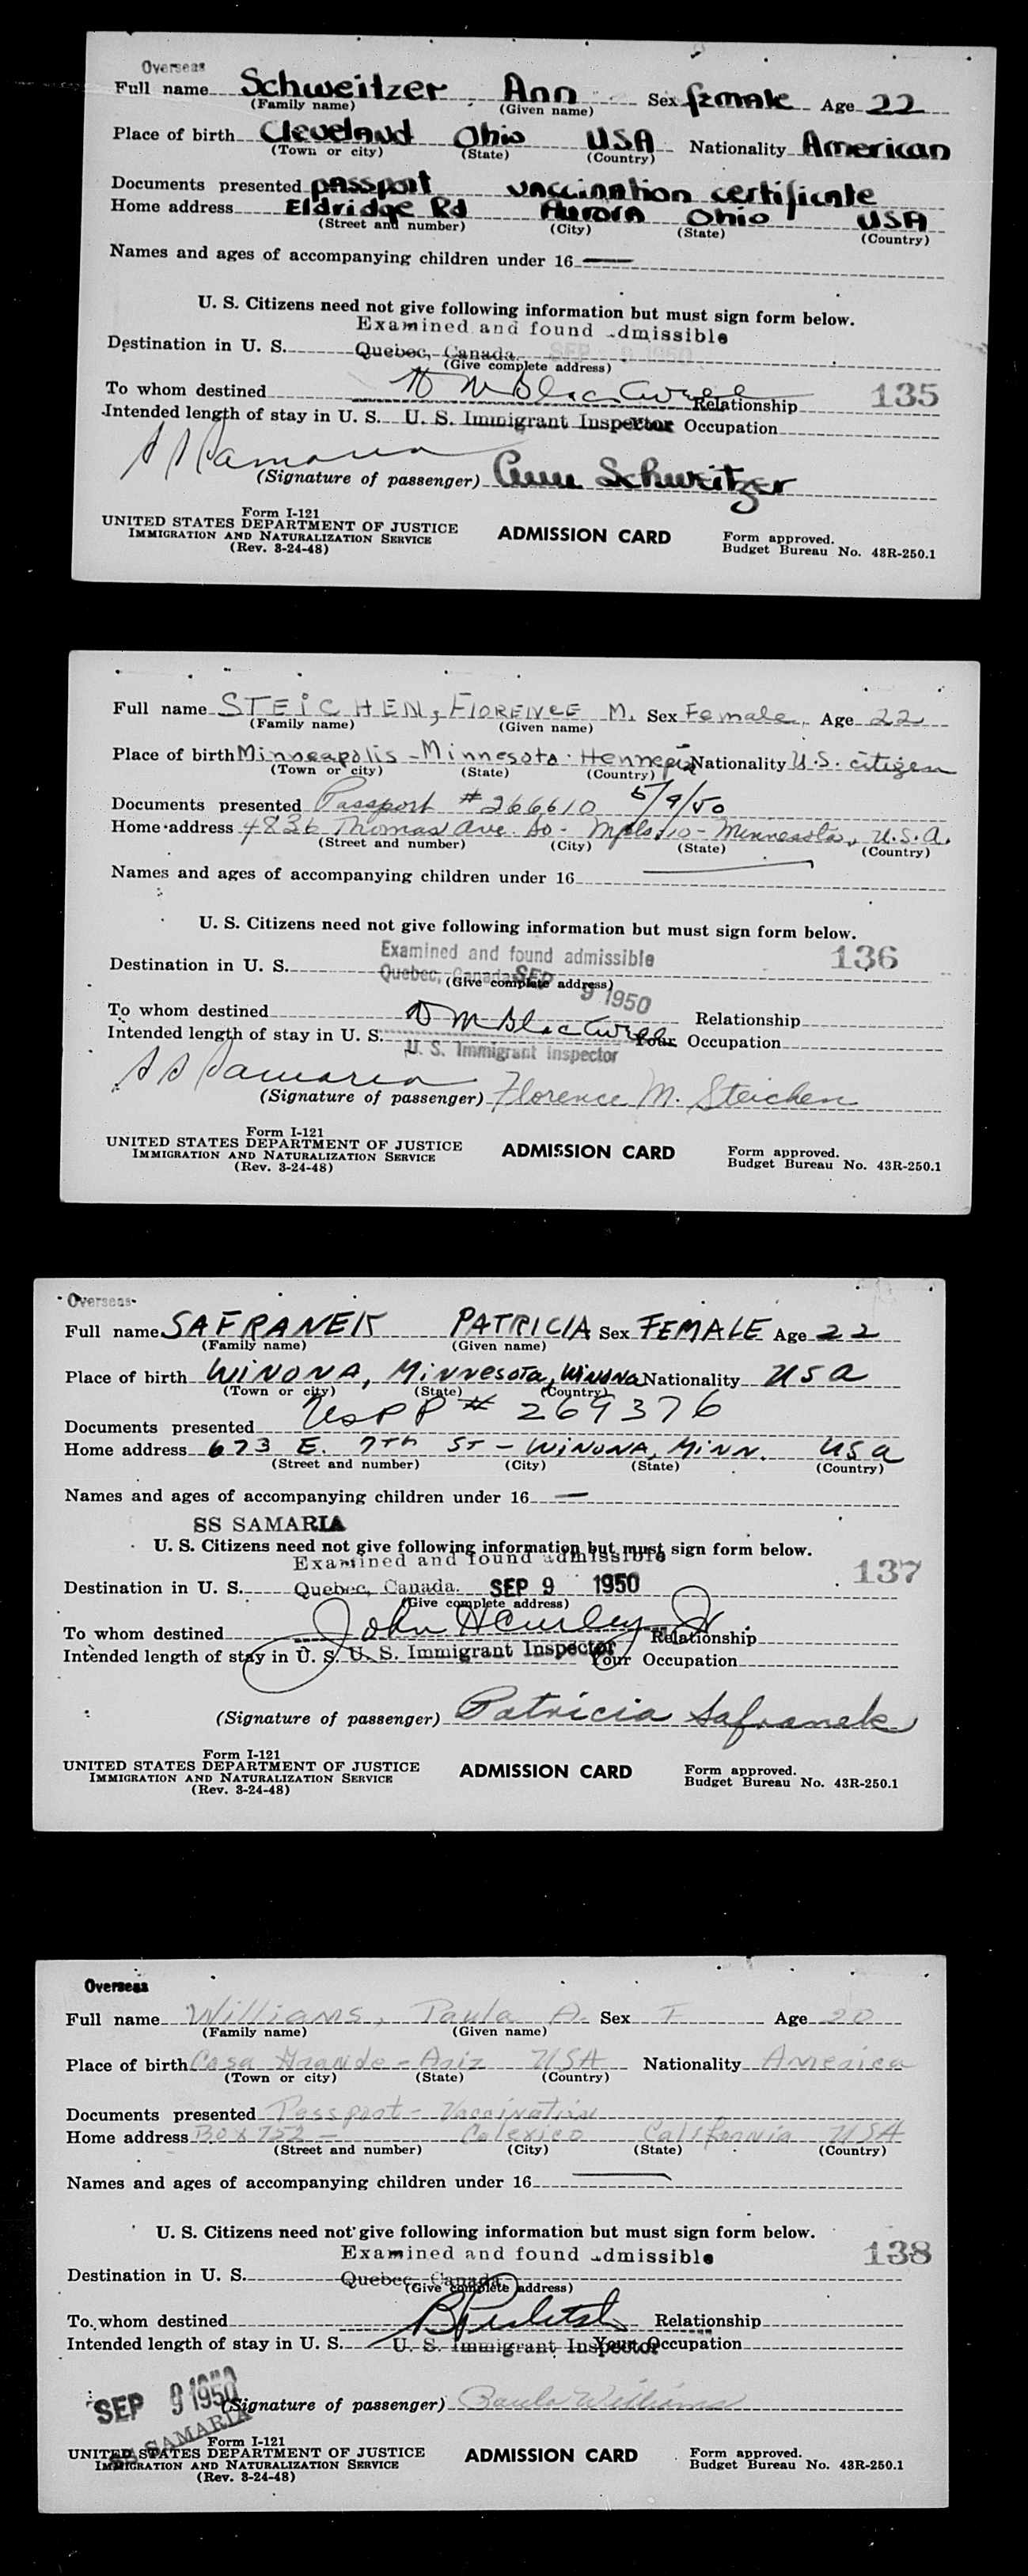 Overseas
Full name Schweitzer Ann Sex female Age 22
(Family name) (Given name)
Place of birth Cleveland Ohio USA Nationality American
(Town or city) (State) (Country)
Documents presented passport vaccination certificate
Home address Eldridge Rd Aurora Ohio USA
(Street and number) (City) (State) (Country)
Names and ages of accompanying children under 16 —
U. S. Citizens need not give following information but must sign form below.
Examined and found admissible
Destination in U. S. Quebec, Canada. SEP 9 1950
(Give complete address)
To whom destined Relationship 135
Intended length of stay in U. S. U. S. Immigrant Inspector Your Occupation
SS Samaria
(Signature of passenger) Ann Schweitzer
Form I-121
UNITED STATES DEPARTMENT OF JUSTICE
IMMIGRATION AND NATURALIZATION SERVICE
(Rev. 3-24-48)
ADMISSION CARD
Form approved.
Budget Bureau No. 43R-250.1
Full name STEICHEN, FlORENCE M. Sex Female Age 22
(Family name) (Given name)
Place of birth Minneapolis - Minnesota - Hennepin Nationality U.S. citizen
(Town or city) (State) (Country)
Documents presented Passport # 266610 5/9/50
Home address 4836 Thomas Ave. So. Mpls. 10 - Minnesota, U.S.A.
(Street and number) (City) (State) (Country)
Names and ages of accompanying children under 16 —
U. S. Citizens need not give following information but must sign form below.
Examined and found admissible 136
Destination in U. S. Quebec, Canada SEP 9 1950
(Give complete address)
To whom destined Relationship
Intended length of stay in U. S. Your Occupation
U. S. Immigrant Inspector
SS Samaria
(Signature of passenger) Florence M. Steichen
Form I-121
UNITED STATES DEPARTMENT OF JUSTICE
IMMIGRATION AND NATURALIZATION SERVICE
(Rev. 3-24-48)
ADMISSION CARD
Form approved.
Budget Bureau No. 43R-250.1
Overseas
Full name SAFRANEK PATRICIA Sex FEMALE Age 22
(Family name) (Given name)
Place of birth WINONA, MINNESOTA, WINONA Nationality USA
(Town or city) (State) (Country)
Documents presented USPP # 269376
Home address 673 E. 7TH ST - WINONA, MINN. USA
(Street and number) (City) (State) (Country)
Names and ages of accompanying children under 16 —
SS SAMARIA
U. S. Citizens need not give following information but must sign form below.
Examined and found admissible
137
Destination in U. S. Quebec, Canada. SEP 9 1950
(Give complete address)
To whom destined John H Curley Jr. Relationship
Intended length of stay in U. S. U. S. Immigrant Inspector Your Occupation
(Signature of passenger) Patricia Safranek
Form I-121
UNITED STATES DEPARTMENT OF JUSTICE
IMMIGRATION AND NATURALIZATION SERVICE
(Rev. 3-24-48)
ADMISSION CARD
Form approved.
Budget Bureau No. 43R-250.1
Overseas
Full name Williams, Paula A. Sex F Age 20
(Family name) (Given name)
Place of birth Casa Grande - Ariz USA Nationality America
(Town or city) (State) (Country)
Documents presented Passport - Vaccination
Home address Box 752 - Calexico California USA
(Street and number) (City) (State) (Country)
Names and ages of accompanying children under 16 —
U. S. Citizens need not give following information but must sign form below.
Examined and found admissible 138
Destination in U. S. Quebec, Canada
(Give complete address)
To whom destined Relationship
Intended length of stay in U. S. U. S. Immigrant Inspector Your Occupation
SEP 9 1950
(Signature of passenger) Paula Williams
SS SAMARIA
Form I-121
UNITED STATES DEPARTMENT OF JUSTICE
IMMIGRATION AND NATURALIZATION SERVICE
(Rev. 3-24-48)
ADMISSION CARD
Form approved.
Budget Bureau No. 43R-250.1